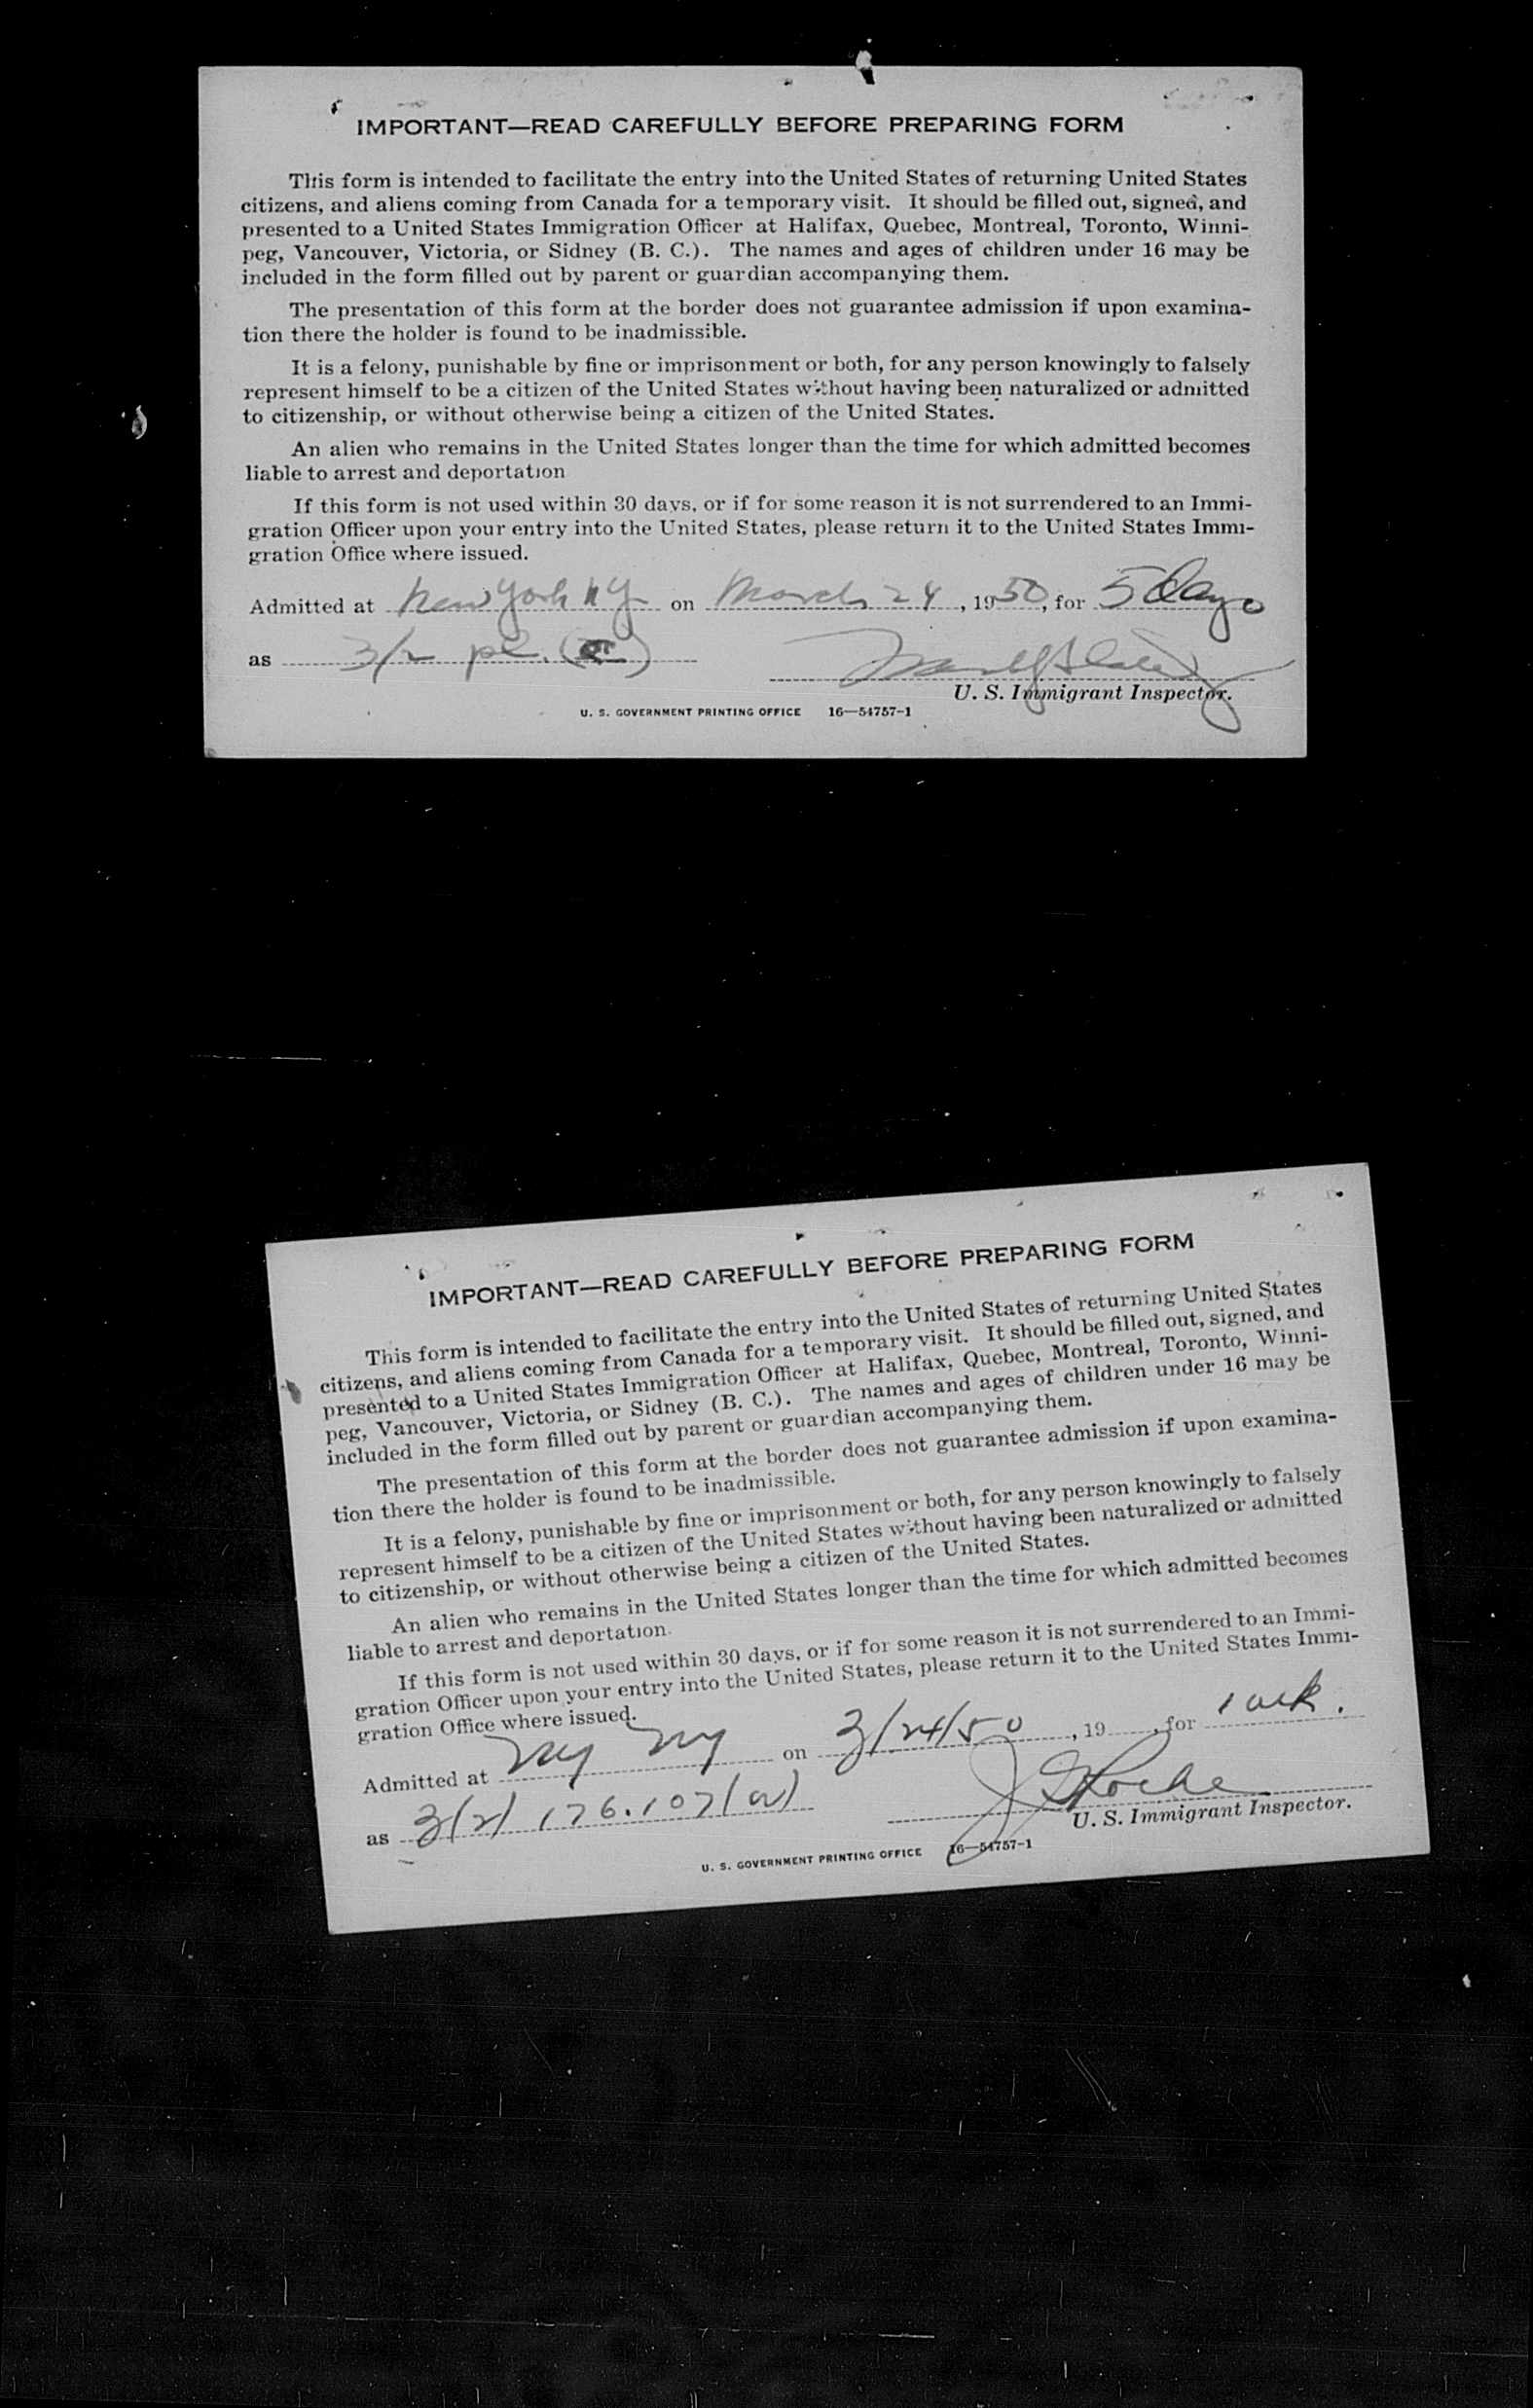 IMPORTANT—READ CAREFULLY BEFORE PREPARING FORM
This form is intended to facilitate the entry into the United States of returning United States
citizens, and aliens coming from Canada for a temporary visit. It should be filled out, signed, and
presented to a United States Immigration Officer at Halifax, Quebec, Montreal, Toronto, Winni-
peg, Vancouver, Victoria, or Sidney (B. C.). The names and ages of children under 16 may be
included in the form filled out by parent or guardian accompanying them.
The presentation of this form at the border does not guarantee admission if upon examina-
tion there the holder is found to be inadmissible.
It is a felony, punishable by fine or imprisonment or both, for any person knowingly to falsely
represent himself to be a citizen of the United States without having been naturalized or admitted
to citizenship, or without otherwise being a citizen of the United States.
An alien who remains in the United States longer than the time for which admitted becomes
liable to arrest and deportation
If this form is not used within 30 days, or if for some reason it is not surrendered to an Immi-
gration Officer upon your entry into the United States, please return it to the United States Immi-
gration Office where issued.
Admitted at New York NY on March 24, 1950, for 5 Days
as 3/2 pl.
U. S. Immigrant Inspector.
U. S. GOVERNMENT PRINTING OFFICE 16—54757-1
IMPORTANT—READ CAREFULLY BEFORE PREPARING FORM
This form is intended to facilitate the entry into the United States of returning United States
citizens, and aliens coming from Canada for a temporary visit. It should be filled out, signed, and
presented to a United States Immigration Officer at Halifax, Quebec, Montreal, Toronto, Winni-
peg, Vancouver, Victoria, or Sidney (B. C.). The names and ages of children under 16 may be
included in the form filled out by parent or guardian accompanying them.
The presentation of this form at the border does not guarantee admission if upon examina-
tion there the holder is found to be inadmissible.
It is a felony, punishable by fine or imprisonment or both, for any person knowingly to falsely
represent himself to be a citizen of the United States without having been naturalized or admitted
to citizenship, or without otherwise being a citizen of the United States.
An alien who remains in the United States longer than the time for which admitted becomes
liable to arrest and deportation.
If this form is not used within 30 days, or if for some reason it is not surrendered to an Immi-
gration Officer upon your entry into the United States, please return it to the United States Immi-
gration Office where issued.
Admitted at NY NY on 3/24/50, 19, for 1 wk.
as 3(2) 176.107(a)
J Roche
U. S. Immigrant Inspector.
U. S. GOVERNMENT PRINTING OFFICE 16—54757-1